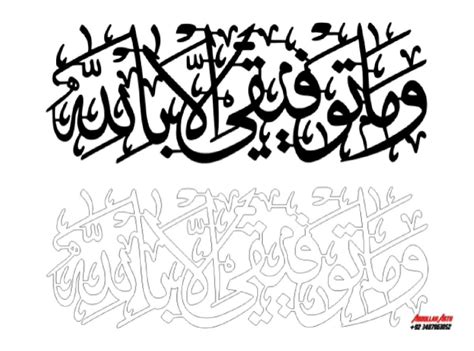 وَمَا تَوْفِيقِي إِلَّا بِاللَّهِ
وَمَا تَوْفِيقِي إِلَّا بِاللَّهِ
Abdullah Arts
+92 3467863052